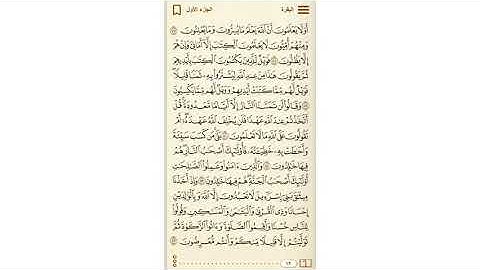 البقرة
الجزء الأول
أَوَلَا يَعْلَمُونَ أَنَّ ٱللَّهَ يَعْلَمُ مَا يُسِرُّونَ وَمَا يُعْلِنُونَ ٧٧
وَمِنْهُمْ أُمِّيُّونَ لَا يَعْلَمُونَ ٱلْكِتَٰبَ إِلَّآ أَمَانِىَّ وَإِنْ هُمْ
إِلَّا يَظُنُّونَ ٧٨ فَوَيْلٌ لِّلَّذِينَ يَكْتُبُونَ ٱلْكِتَٰبَ بِأَيْدِيهِمْ
ثُمَّ يَقُولُونَ هَٰذَا مِنْ عِندِ ٱللَّهِ لِيَشْتَرُوا۟ بِهِۦ ثَمَنًا قَلِيلًا
فَوَيْلٌ لَّهُم مِّمَّا كَتَبَتْ أَيْدِيهِمْ وَوَيْلٌ لَّهُم مِّمَّا يَكْسِبُونَ
٧٩ وَقَالُوا۟ لَن تَمَسَّنَا ٱلنَّارُ إِلَّآ أَيَّامًا مَّعْدُودَةً قُلْ
أَتَّخَذْتُمْ عِندَ ٱللَّهِ عَهْدًا فَلَن يُخْلِفَ ٱللَّهُ عَهْدَهُۥٓ أَمْ
تَقُولُونَ عَلَى ٱللَّهِ مَا لَا تَعْلَمُونَ ٨٠ بَلَىٰ مَن كَسَبَ سَيِّئَةً
وَأَحَٰطَتْ بِهِۦ خَطِيٓـَٔتُهُۥ فَأُو۟لَٰٓئِكَ أَصْحَٰبُ ٱلنَّارِ هُمْ
فِيهَا خَٰلِدُونَ ٨١ وَٱلَّذِينَ ءَامَنُوا۟ وَعَمِلُوا۟ ٱلصَّٰلِحَٰتِ
أُو۟لَٰٓئِكَ أَصْحَٰبُ ٱلْجَنَّةِ هُمْ فِيهَا خَٰلِدُونَ ٨٢ وَإِذْ أَخَذْنَا
مِيثَٰقَ بَنِىٓ إِسْرَٰٓءِيلَ لَا تَعْبُدُونَ إِلَّا ٱللَّهَ وَبِٱلْوَٰلِدَيْنِ
إِحْسَانًا وَذِى ٱلْقُرْبَىٰ وَٱلْيَتَٰمَىٰ وَٱلْمَسَٰكِينِ وَقُولُوا۟
لِلنَّاسِ حُسْنًا وَأَقِيمُوا۟ ٱلصَّلَوٰةَ وَءَاتُوا۟ ٱلزَّكَوٰةَ ثُمَّ
تَوَلَّيْتُمْ إِلَّا قَلِيلًا مِّنكُمْ وَأَنتُم مُّعْرِضُونَ ٨٣
١٢